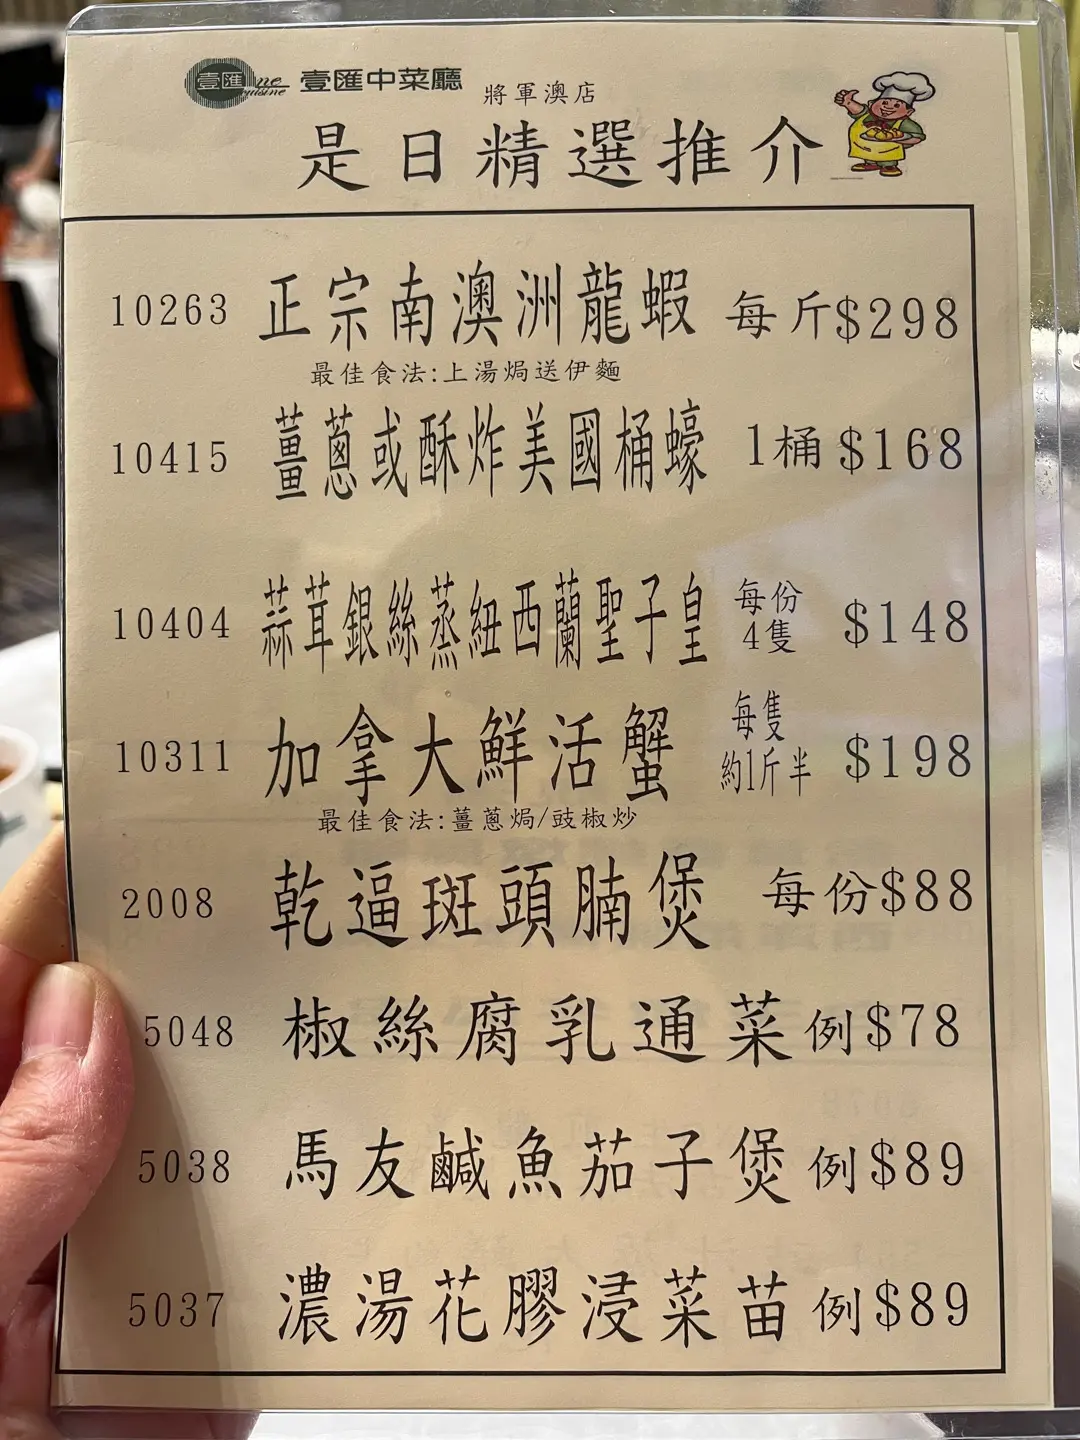 壹匯 One Cuisine 壹匯中菜廳 將軍澳店
是日精選推介
10263 正宗南澳洲龍蝦 每斤$298
最佳食法:上湯焗送伊麵
10415 薑蔥或酥炸美國桶蠔 1桶 $168
10404 蒜茸銀絲蒸紐西蘭聖子皇 每份4隻 $148
10311 加拿大鮮活蟹 每隻約1斤半 $198
最佳食法:薑蔥焗/豉椒炒
2008 乾逼斑頭腩煲 每份$88
5048 椒絲腐乳通菜 例$78
5038 馬友鹹魚茄子煲 例$89
5037 濃湯花膠浸菜苗 例$89